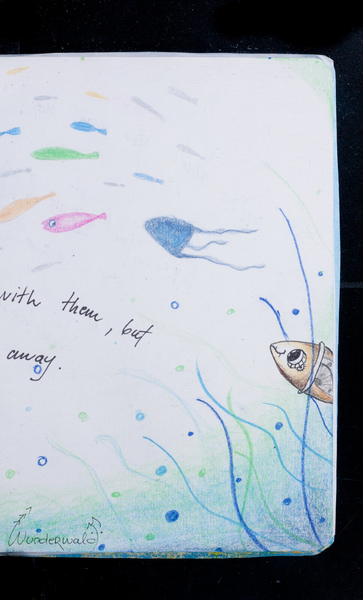 with them, but
away.
Wunderwald